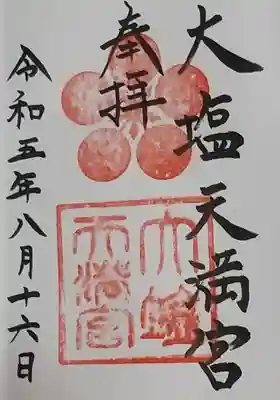 大塩天満宮
奉拝
令和五年八月十六日
大塩
天満宮